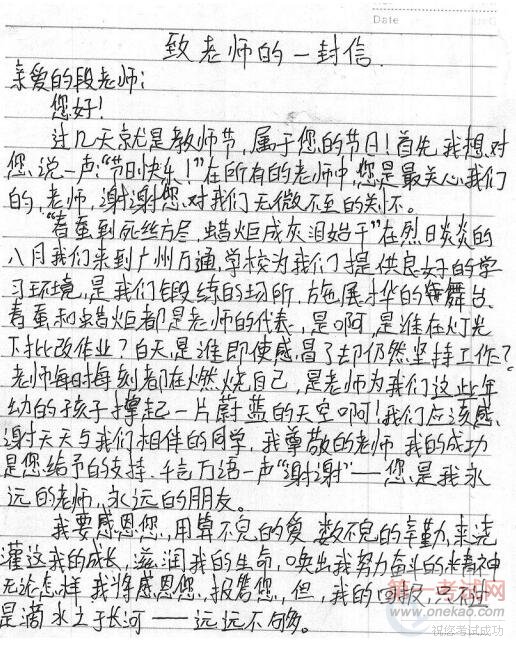 Date
致老师的一封信
亲爱的段老师:
您好!
过几天就是教师节,属于您的节日!首先,我想对
您说一声:“节日快乐!”在所有的老师中,您是最关心我们
的,老师,谢谢您对我们无微不至的关怀。
“春蚕到死丝方尽,蜡炬成灰泪始干”在烈日炎炎的
八月我们来到广州万通,学校为我们提供良好的学
习环境,是我们锻练的场所,施展才华的舞台。
春蚕和蜡炬都是老师的代表,是啊,是谁在灯光
下批改作业?白天,是谁即使感冒了却仍然坚持工作?
老师每时每刻都在燃烧自己,是老师为我们这些年
幼的孩子撑起一片蔚蓝的天空啊!我们应该感
谢天天与我们相伴的同学,我尊敬的老师,我的成功
是您给予的支持.千言万语一声“谢谢”——您是我永
远的老师,永远的朋友。
我要感恩您,用算不完的爱,数不完的辛勤,来浇
灌这我的成长,滋润我的生命,唤出我努力奋斗的精神
无论怎样,我将感恩您,报答您,但,我的回报,只不过
是滴水于长河——远远不够。
第一考试网
www.onekao.com
祝您考试成功